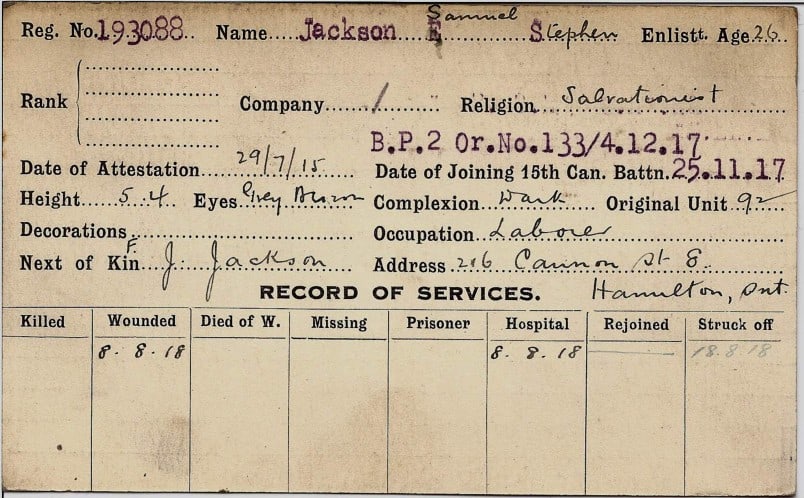 Samuel
Reg. No. 193088. Name Jackson E Stephen Enlistt. Age 26
Rank Company / Religion Salvationist
B.P.2 Or.No.133/4.12.17
Date of Attestation 29/7/15 Date of Joining 15th Can. Battn. 25.11.17
Height 5.4 Eyes Grey Brown Complexion Dark Original Unit 92
Decorations Occupation Laborer
Next of Kin F. J. Jackson Address 216 Cannon St E.
RECORD OF SERVICES. Hamilton, Ont.
Killed Wounded Died of W. Missing Prisoner Hospital Rejoined Struck off
8. 8. 18 8. 8. 18 18.8.18